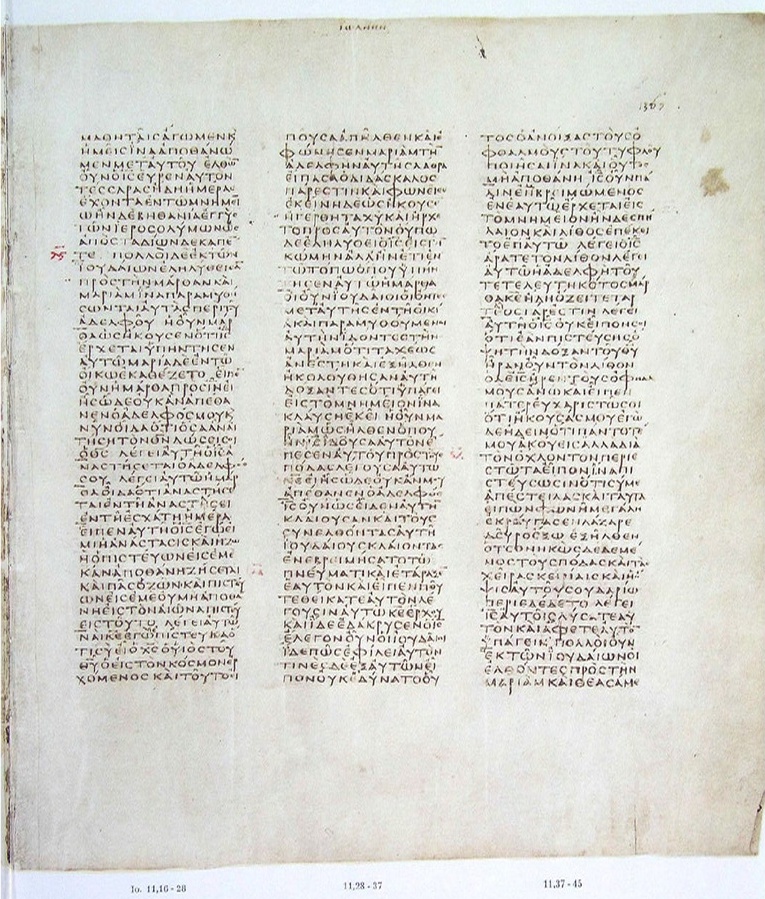 ΙΩΑΝΗΝ
1367
ΜΑΘΗΤΑΙΣ ΑΓΩΜΕΝ Κ
ΗΜΕΙΣ ΙΝΑ ΑΠΟΘΑΝΩ
ΜΕΝ ΜΕΤ ΑΥΤΟΥ ΕΛΘΩ
ΟΥΝ Ο ΙΣ ΕΥΡΕΝ ΑΥΤΟΝ
ΤΕΣΣΑΡΑΣ ΗΔΗ ΗΜΕΡΑΣ
ΕΧΟΝΤΑ ΕΝ ΤΩ ΜΝΗΜΕΙ
ΩΗΝ ΔΕ ΒΗΘΑΝΙΑ ΕΓΓΥΣ
ΤΩΝ ΙΕΡΟΣΟΛΥΜΩΝ ΩΣ
ΑΠΟ ΣΤΑΔΙΩΝ ΔΕΚΑΠΕ
ΤΕ ΠΟΛΛΟΙ ΔΕ ΕΚ ΤΩΝ
ΙΟΥΔΑΙΩΝ ΕΛΗΛΥΘΕΙΣΑ
ΠΡΟΣ ΤΗΝ ΜΑΡΘΑΝ ΚΑΙ
ΜΑΡΙΑΜ ΙΝΑ ΠΑΡΑΜΥΘΗ
ΣΩΝΤΑΙ ΑΥΤΑΣ ΠΕΡΙ ΤΟΥ
ΑΔΕΛΦΟΥ Η ΟΥΝ ΜΑΡ
ΘΑ ΩΣ ΗΚΟΥΣΕΝ ΟΤΙ ΙΣ
ΕΡΧΕΤΑΙ ΥΠΗΝΤΗΣΕΝ
ΑΥΤΩ ΜΑΡΙΑ ΔΕ ΕΝ ΤΩ
ΟΙΚΩ ΕΚΑΘΕΖΕΤΟ ΕΙΠΕ
ΟΥΝ Η ΜΑΡΘΑ ΠΡΟΣ ΙΝ ΕΙ
ΗΣ ΩΔΕ ΟΥΚ ΑΝ ΑΠΕΘΑ
ΝΕΝ Ο ΑΔΕΛΦΟΣ ΜΟΥ Κ
ΝΥΝ ΟΙΔΑ ΟΤΙ ΟΣΑ ΑΝ ΑΙ
ΤΗΣΗ ΤΟΝ ΘΝ ΔΩΣΕΙ ΣΟΙ Ο
ΘΣ ΛΕΓΕΙ ΑΥΤΗ Ο ΙΣ Α
ΝΑΣΤΗΣΕΤΑΙ Ο ΑΔΕΛΦΟΣ
ΣΟΥ ΛΕΓΕΙ ΑΥΤΩ Η ΜΑΡ
ΘΑ ΟΙΔΑ ΟΤΙ ΑΝΑΣΤΗΣΕ
ΤΑΙ ΕΝ ΤΗ ΑΝΑΣΤΑΣΕΙ
ΕΝ ΤΗ ΕΣΧΑΤΗ ΗΜΕΡΑ
ΕΙΠΕΝ ΑΥΤΗ Ο ΙΣ ΕΓΩ ΕΙ
ΜΙ Η ΑΝΑΣΤΑΣΙΣ ΚΑΙ Η ΖΩ
Η Ο ΠΙΣΤΕΥΩΝ ΕΙΣ ΕΜΕ
ΚΑΝ ΑΠΟΘΑΝΗ ΖΗΣΕΤΑΙ
ΚΑΙ ΠΑΣ Ο ΖΩΝ ΚΑΙ ΠΙΣΤΕΥ
ΩΝ ΕΙΣ ΕΜΕ ΟΥ ΜΗ ΑΠΟΘΑ
ΝΗ ΕΙΣ ΤΟΝ ΑΙΩΝΑ ΠΙΣΤΕΥ
ΕΙΣ ΤΟΥΤΟ ΛΕΓΕΙ ΑΥΤΩ
ΝΑΙ ΚΕ ΕΓΩ ΠΙΣΤΕΥΩ Ο
ΤΙ ΣΥ ΕΙ Ο ΧΣ Ο ΥΙΟΣ ΤΟΥ
ΘΥ Ο ΕΙΣ ΤΟΝ ΚΟΣΜΟΝ ΕΡ
ΧΟΜΕΝΟΣ ΚΑΙ ΤΟΥΤΟ ΕΙ
ΠΟΥΣΑ ΑΠΗΛΘΕΝ ΚΑΙ Ε
ΦΩΝΗΣΕΝ ΜΑΡΙΑΜ ΤΗ
ΑΔΕΛΦΗΝ ΑΥΤΗΣ ΛΑΘΡΑ
ΕΙΠΑΣΑ Ο ΔΙΔΑΣΚΑΛΟΣ
ΠΑΡΕΣΤΙΝ ΚΑΙ ΦΩΝΕΙ ΣΕ
ΕΚΕΙΝΗ ΔΕ ΩΣ ΗΚΟΥΣΕ
ΗΓΕΡΘΗ ΤΑΧΥ ΚΑΙ ΗΡΧΕ
ΤΟ ΠΡΟΣ ΑΥΤΟΝ ΟΥΠΩ
ΔΕ ΕΛΗΛΥΘΕΙ Ο ΙΣ ΕΙΣ ΤΗ
ΚΩΜΗΝ ΑΛΛ ΗΝ ΕΤΙ ΕΝ
ΤΩ ΤΟΠΩ ΟΠΟΥ ΥΠΗΝ
ΤΗΣΕΝ ΑΥΤΩ Η ΜΑΡΘΑ
ΟΙ ΟΥΝ ΙΟΥΔΑΙΟΙ ΟΙ ΟΝΤΕΣ
ΜΕΤ ΑΥΤΗΣ ΕΝ ΤΗ ΟΙΚΙ
Α ΚΑΙ ΠΑΡΑΜΥΘΟΥΜΕΝΟΙ
ΑΥΤΗΝ ΙΔΟΝΤΕΣ ΤΗΝ
ΜΑΡΙΑΜ ΟΤΙ ΤΑΧΕΩΣ
ΑΝΕΣΤΗ ΚΑΙ ΕΞΗΛΘΕΝ
ΗΚΟΛΟΥΘΗΣΑΝ ΑΥΤΗ
ΔΟΞΑΝΤΕΣ ΟΤΙ ΥΠΑΓΕΙ
ΕΙΣ ΤΟ ΜΝΗΜΕΙΟΝ ΙΝΑ
ΚΛΑΥΣΗ ΕΚΕΙ Η ΟΥΝ ΜΑ
ΡΙΑΜ ΩΣ ΗΛΘΕΝ ΟΠΟΥ
ΗΝ ΙΣ ΙΔΟΥΣΑ ΑΥΤΟΝ Ε
ΠΕΣΕΝ ΑΥΤΟΥ ΠΡΟΣ ΤΟΥΣ
ΠΟΔΑΣ ΛΕΓΟΥΣΑ ΑΥΤΩ
ΚΕ ΕΙ ΗΣ ΩΔΕ ΟΥΚ ΑΝ ΜΟΥ
ΑΠΕΘΑΝΕΝ Ο ΑΔΕΛΦΟΣ
ΙΣ ΟΥΝ ΩΣ ΕΙΔΕΝ ΑΥΤΗ
ΚΛΑΙΟΥΣΑΝ ΚΑΙ ΤΟΥΣ
ΣΥΝΕΛΘΟΝΤΑΣ ΑΥΤΗ
ΙΟΥΔΑΙΟΥΣ ΚΛΑΙΟΝΤΑΣ
ΕΝΕΒΡΕΙΜΗΣΑΤΟ ΤΩ
ΠΝΕΥΜΑΤΙ ΚΑΙ ΕΤΑΡΑΞΕ
ΕΑΥΤΟΝ ΚΑΙ ΕΙΠΕΝ ΠΟΥ
ΤΕΘΕΙΚΑΤΕ ΑΥΤΟΝ ΛΕ
ΓΟΥΣΙΝ ΑΥΤΩ ΚΕ ΕΡΧΟΥ
ΚΑΙ ΙΔΕ ΕΔΑΚΡΥΣΕΝ Ο ΙΣ
ΕΛΕΓΟΝ ΟΥΝ ΟΙ ΙΟΥΔΑΙΟΙ
ΙΔΕ ΠΩΣ ΕΦΙΛΕΙ ΑΥΤΟΝ
ΤΙΝΕΣ ΔΕ ΕΞ ΑΥΤΩΝ ΕΙ
ΠΟΝ ΟΥΚ ΕΔΥΝΑΤΟ ΟΥ
ΤΟΣ Ο ΑΝΟΙΞΑΣ ΤΟΥΣ Ο
ΦΘΑΛΜΟΥΣ ΤΟΥ ΤΥΦΛΟΥ
ΠΟΙΗΣΑΙ ΙΝΑ ΚΑΙ ΟΥΤΟΣ
ΜΗ ΑΠΟΘΑΝΗ ΙΣ ΟΥΝ ΠΑ
ΛΙΝ ΕΜΒΡΕΙΜΩΜΕΝΟΣ
ΕΝ ΕΑΥΤΩ ΕΡΧΕΤΑΙ ΕΙΣ
ΤΟ ΜΝΗΜΕΙΟΝ ΗΝ ΔΕ ΣΠΗ
ΛΑΙΟΝ ΚΑΙ ΛΙΘΟΣ ΕΠΕΚΕΙ
ΤΟ ΕΠ ΑΥΤΩ ΛΕΓΕΙ Ο ΙΣ
ΑΡΑΤΕ ΤΟΝ ΛΙΘΟΝ ΛΕΓΕΙ
ΑΥΤΩ Η ΑΔΕΛΦΗ ΤΟΥ
ΤΕΤΕΛΕΥΤΗΚΟΤΟΣ ΜΑΡ
ΘΑ ΚΕ ΗΔΗ ΟΖΕΙ ΤΕΤΑΡ
ΤΑΙΟΣ ΓΑΡ ΕΣΤΙΝ ΛΕΓΕΙ
ΑΥΤΗ Ο ΙΣ ΟΥΚ ΕΙΠΟΝ ΣΟΙ
ΟΤΙ ΕΑΝ ΠΙΣΤΕΥΣΗΣ Ο
ΨΗ ΤΗΝ ΔΟΞΑΝ ΤΟΥ ΘΥ
ΗΡΑΝ ΟΥΝ ΤΟΝ ΛΙΘΟΝ
Ο ΔΕ ΙΣ ΗΡΕΝ ΤΟΥΣ ΟΦΘΑΛ
ΜΟΥΣ ΑΝΩ ΚΑΙ ΕΙΠΕΝ
ΠΑΤΕΡ ΕΥΧΑΡΙΣΤΩ ΣΟΙ
ΟΤΙ ΗΚΟΥΣΑΣ ΜΟΥ ΕΓΩ
ΔΕ ΗΔΕΙΝ ΟΤΙ ΠΑΝΤΟΤΕ
ΜΟΥ ΑΚΟΥΕΙΣ ΑΛΛΑ ΔΙΑ
ΤΟΝ ΟΧΛΟΝ ΤΟΝ ΠΕΡΙΕ
ΣΤΩΤΑ ΕΙΠΟΝ ΙΝΑ ΠΙ
ΣΤΕΥΣΩΣΙΝ ΟΤΙ ΣΥ ΜΕ
ΑΠΕΣΤΕΙΛΑΣ ΚΑΙ ΤΑΥΤΑ
ΕΙΠΩΝ ΦΩΝΗ ΜΕΓΑΛΗ
ΕΚΡΑΥΓΑΣΕΝ ΛΑΖΑΡΕ
ΔΕΥΡΟ ΕΞΩ ΕΞΗΛΘΕΝ
Ο ΤΕΘΝΗΚΩΣ ΔΕΔΕΜΕ
ΝΟΣ ΤΟΥΣ ΠΟΔΑΣ ΚΑΙ ΤΑΣ
ΧΕΙΡΑΣ ΚΕΙΡΙΑΙΣ ΚΑΙ Η Ο
ΨΙΣ ΑΥΤΟΥ ΣΟΥΔΑΡΙΩ
ΠΕΡΙΕΔΕΔΕΤΟ ΛΕΓΕΙ
ΙΣ ΑΥΤΟΙΣ ΛΥΣΑΤΕ ΑΥ
ΤΟΝ ΚΑΙ ΑΦΕΤΕ ΑΥΤΟ
ΥΠΑΓΕΙΝ ΠΟΛΛΟΙ ΟΥΝ
ΕΚ ΤΩΝ ΙΟΥΔΑΙΩΝ ΟΙ
ΕΛΘΟΝΤΕΣ ΠΡΟΣ ΤΗΝ
ΜΑΡΙΑΜ ΚΑΙ ΘΕΑΣΑΜΕ
Io. 11,16 - 28
11,28 - 37
11,37 - 45